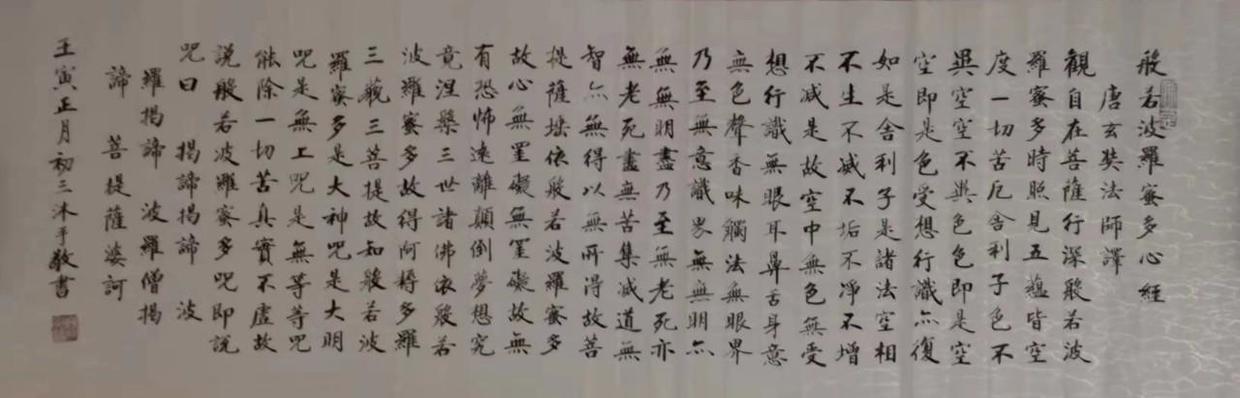 般若波羅蜜多心經
唐玄奘法師譯
觀自在菩薩行深般若波
羅蜜多時照見五蘊皆空
度一切苦厄舍利子色不
異空空不異色色即是空
空即是色受想行識亦復
如是舍利子是諸法空相
不生不滅不垢不凈不增
不減是故空中無色無受
想行識無眼耳鼻舌身意
無色聲香味觸法無眼界
乃至無意識界無無明亦
無無明盡乃至無老死亦
無老死盡無苦集滅道無
智亦無得以無所得故菩
提薩埵依般若波羅蜜多
故心無罣礙無罣礙故無
有恐怖遠離顛倒夢想究
竟涅槃三世諸佛依般若
波羅蜜多故得阿耨多羅
三藐三菩提故知般若波
羅蜜多是大神咒是大明
咒是無上咒是無等等咒
能除一切苦真實不虛故
說般若波羅蜜多咒即說
咒曰 揭諦揭諦 波
羅揭諦 波羅僧揭
諦 菩提薩婆訶
壬寅正月初三沐手敬書